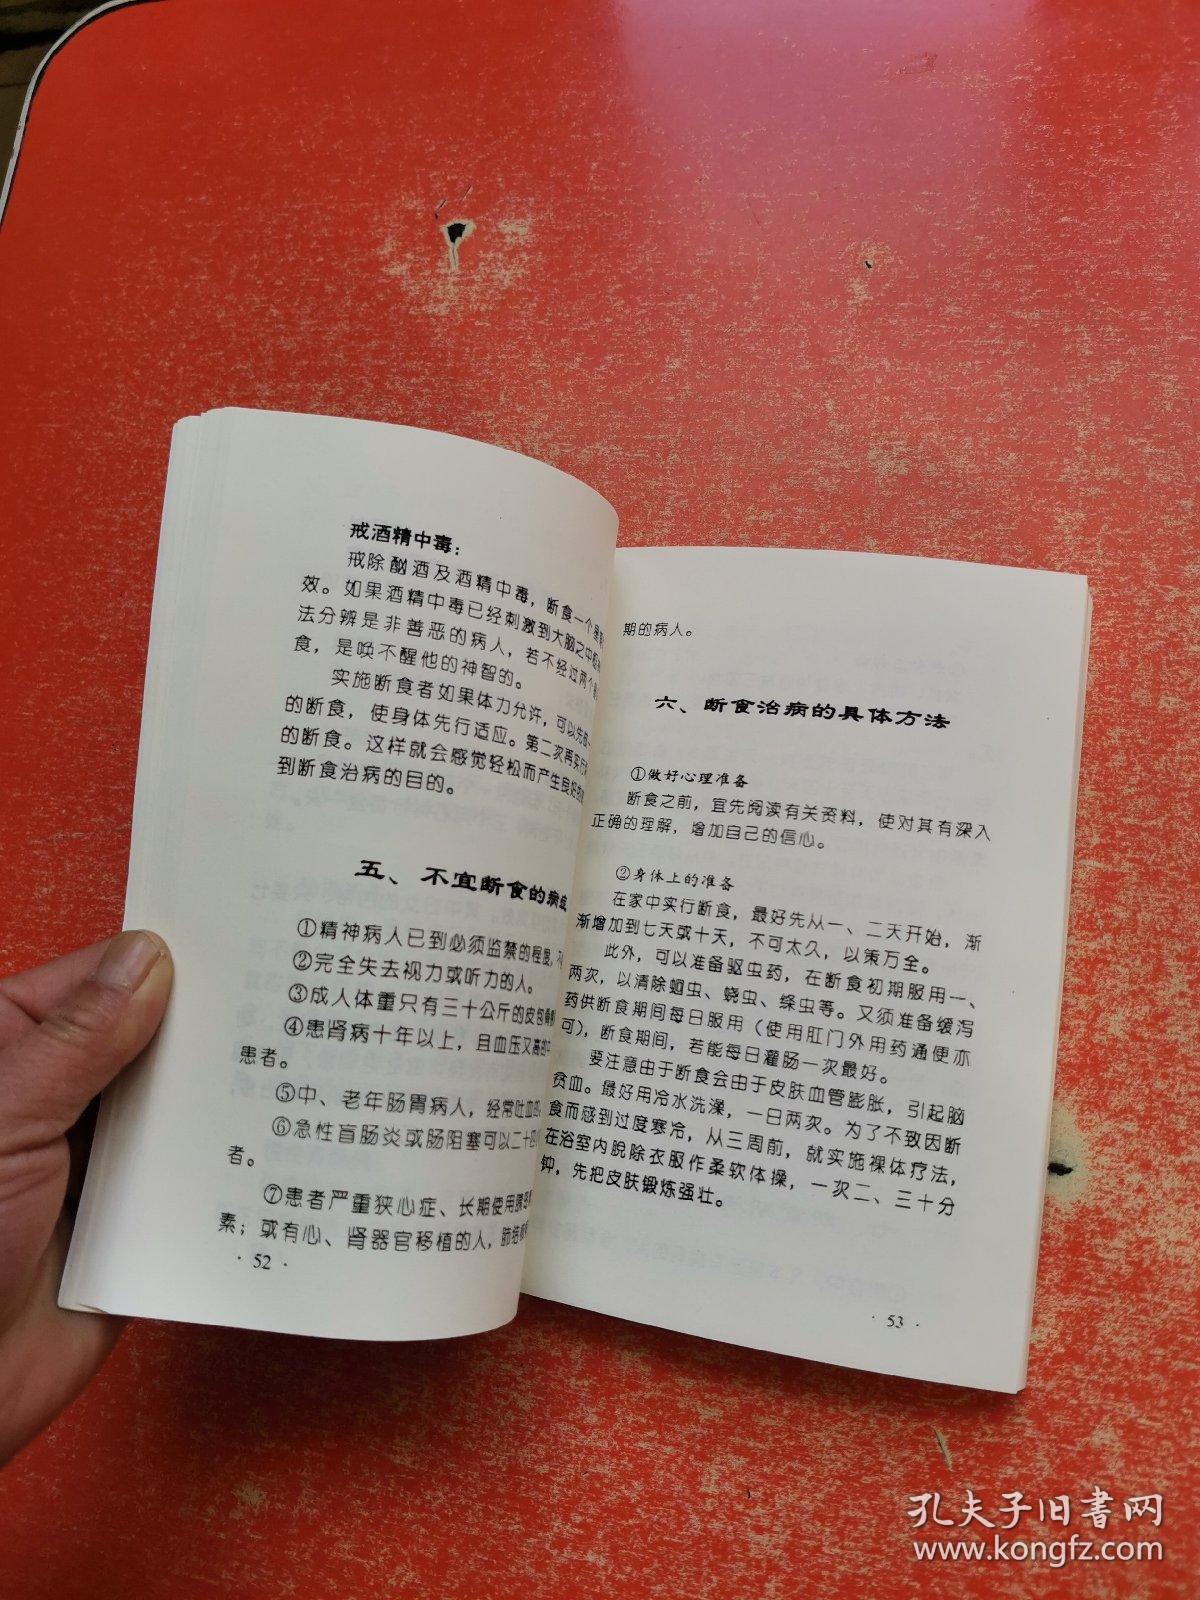 戒酒精中毒：
戒除酗酒及酒精中毒，断食一个星
效。如果酒精中毒已经刺激到大脑之中
法分辨是非善恶的病人，若不经过两个
食，是唤不醒他的神智的。
实施断食者如果体力允许，可以先
的断食，使身体先行适应。第二次再实行
的断食。这样就会感觉轻松而产生良好的
到断食治病的目的。
五、不宜断食的病
①精神病人已到必须监禁的程度，不
②完全失去视力或听力的人。
③成人体重只有三十公斤的皮包骨
④患肾病十年以上，且血压又高的中
患者。
⑤中、老年肠胃病人，经常吐血
⑥急性盲肠炎或肠阻塞可以二十四
者。
⑦患者严重狭心症、长期使用胰
素；或有心、肾器官移植的人，肺结核
· 52 ·
期的病人。
六、断食治病的具体方法
①做好心理准备
断食之前，宜先阅读有关资料，使对其有深入
正确的理解，增加自己的信心。
②身体上的准备
在家中实行断食，最好先从一、二天开始，渐
渐增加到七天或十天，不可太久，以策万全。
此外，可以准备驱虫药，在断食初期服用一、
两次，以清除蛔虫、蛲虫、绦虫等。又须准备缓泻
药供断食期间每日服用（使用肛门外用药通便亦
可），断食期间，若能每日灌肠一次最好。
要注意由于断食会由于皮肤血管膨胀，引起脑
贫血。最好用冷水洗澡，一日两次。为了不致因断
食而感到过度寒冷，从三周前，就实施裸体疗法，
在浴室内脱除衣服作柔软体操，一次二、三十分
钟，先把皮肤锻炼强壮。
· 53 ·
孔夫子旧书网
www.kongfz.com